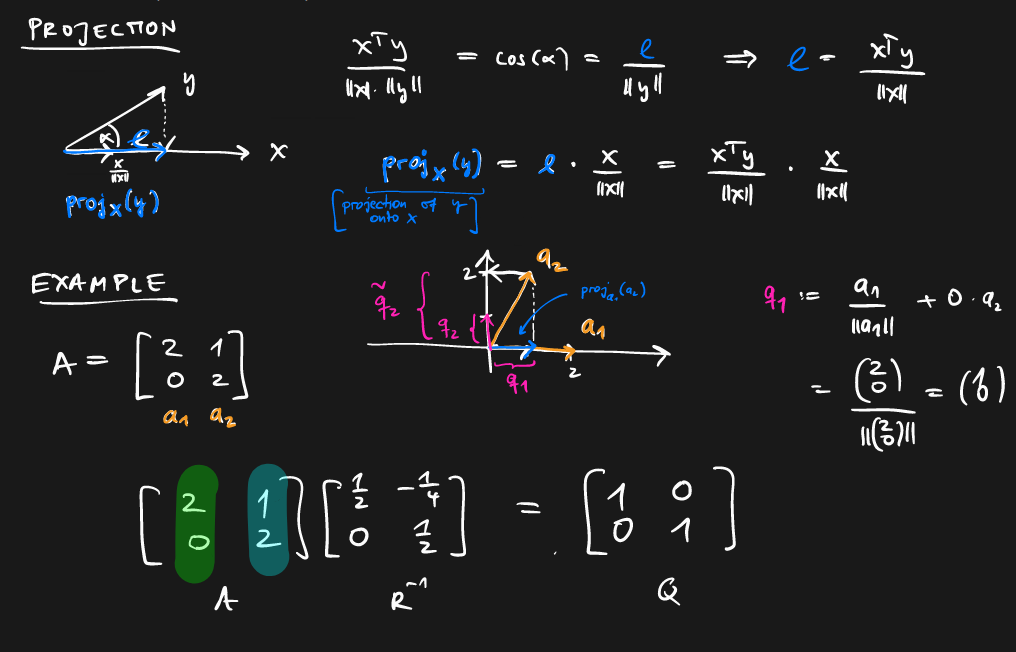 PROJECTION
xᵀy / ||x||·||y|| = cos(α) = l / ||y|| ⇒ l = xᵀy / ||x||
y
α l
x
x / ||x||
projₓ(y)
projₓ(y) = l · x / ||x|| = xᵀy / ||x|| · x / ||x||
[projection of y
onto x]
EXAMPLE
A = [2 1
0 2]
a₁ a₂
2
a₂
q̃₂
q₂
proj_a₁(a₂)
a₁
q₁
2
q₁ := a₁ / ||a₁|| + 0 · a₂
= (2 0) / ||(2 0)|| = (1 0)
[2 1] [1/2 -1/4] = [1 0]
[0 2] [0 1/2] [0 1]
A R⁻¹ Q